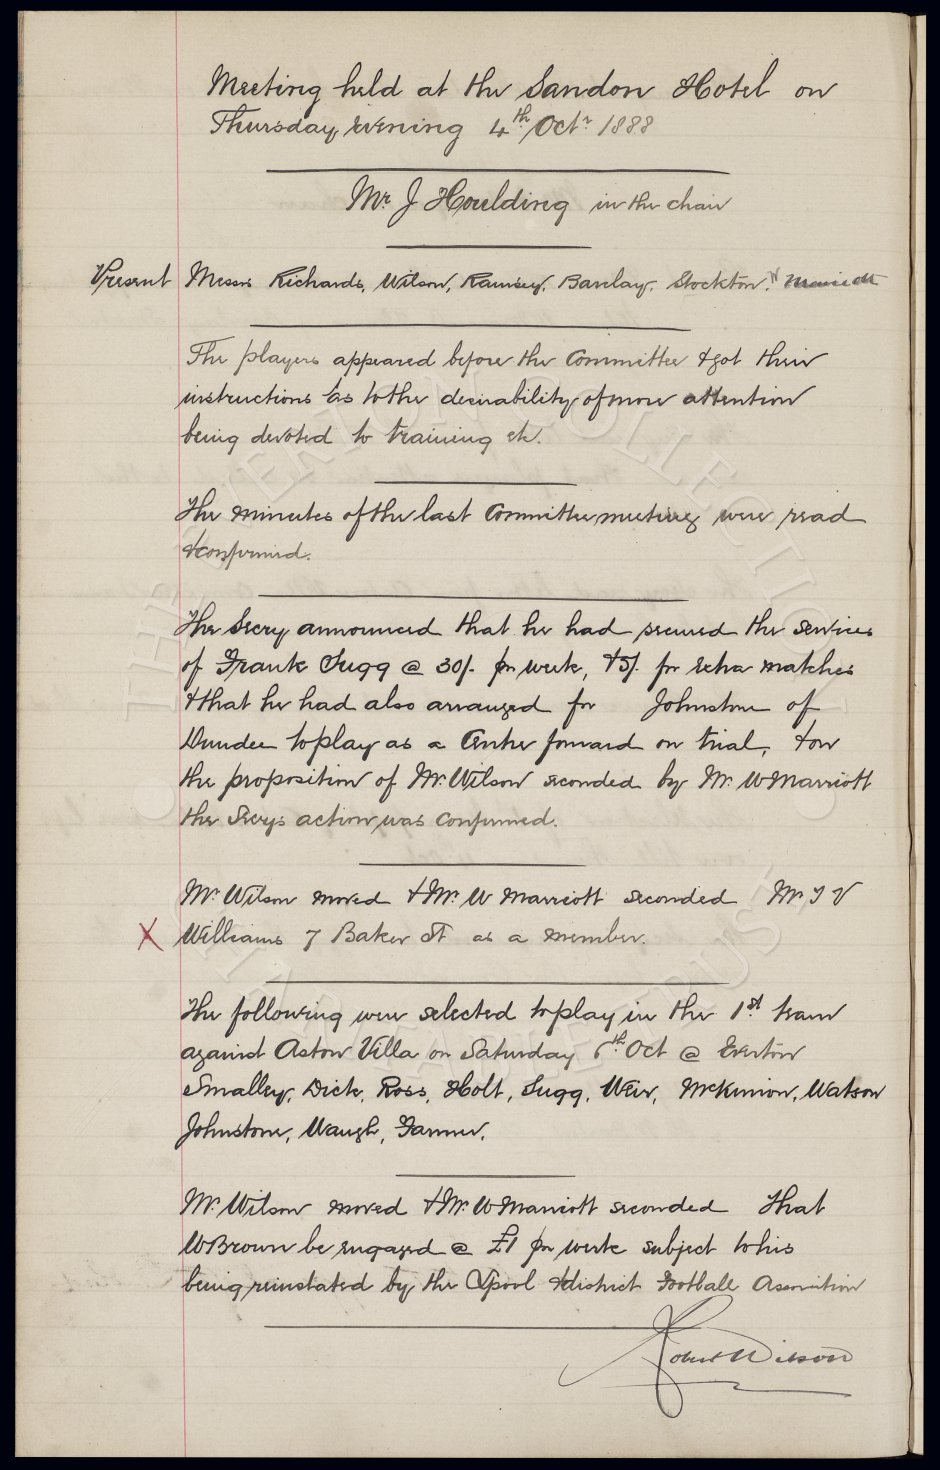 Meeting held at the Sandon Hotel on
Thursday Evening 4th Octr 1888
Mr J Houlding in the chair
Present Messrs Richards, Wilson, Ramsey, Barclay, Stockton, & Marriott
The players appeared before the Committee & got their
instructions as to the desirability of more attention
being devoted to training etc.
The minutes of the last Committee meeting were read
& confirmed.
The Secry announced that he had secured the services
of Frank Sugg @ 30/- per week, & 5/- for Extra matches
& that he had also arranged for Johnstone of
Dundee to play as a Centre forward on trial, & on
the proposition of Mr. Wilson seconded by Mr. W Marriott
the Secrys action was confirmed.
Mr Wilson moved & Mr. W Marriott seconded Mr
X Williams 7 Baker St as a member.
The following were selected to play in the 1st team
against Aston Villa on Saturday 6th Oct @ Everton
Smalley, Dick, Ross, Holt, Sugg, Weir, McKinnon, Watson
Johnstone, Waugh, Farmer.
Mr. Wilson moved & Mr W Marriott seconded that
W Brown be engaged @ £1 per week subject to his
being reinstated by the L'pool & district Football Association
Robert Wilson
THE EVERTON COLLECTION
CHARITABLE TRUST